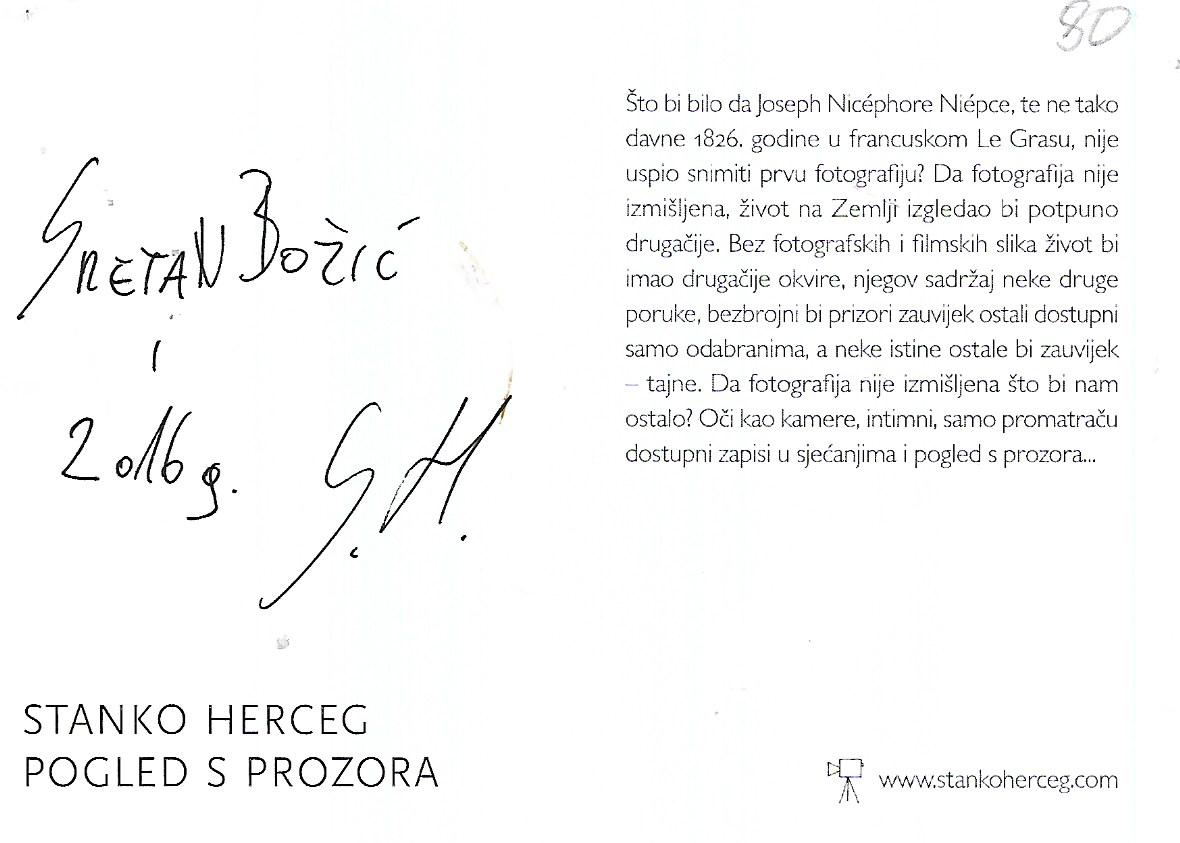 80
SRETAN BOŽIĆ
I
2016 g.
S. H.
STANKO HERCEG
POGLED S PROZORA
Što bi bilo da Joseph Nicéphore Niépce, te ne tako
davne 1826. godine u francuskom Le Grasu, nije
uspio snimiti prvu fotografiju? Da fotografija nije
izmišljena, život na Zemlji izgledao bi potpuno
drugačije. Bez fotografskih i filmskih slika život bi
imao drugačije okvire, njegov sadržaj neke druge
poruke, bezbrojni bi prizori zauvijek ostali dostupni
samo odabranima, a neke istine ostale bi zauvijek
– tajne. Da fotografija nije izmišljena što bi nam
ostalo? Oči kao kamere, intimni, samo promatraču
dostupni zapisi u sjećanjima i pogled s prozora...
www.stankoherceg.com